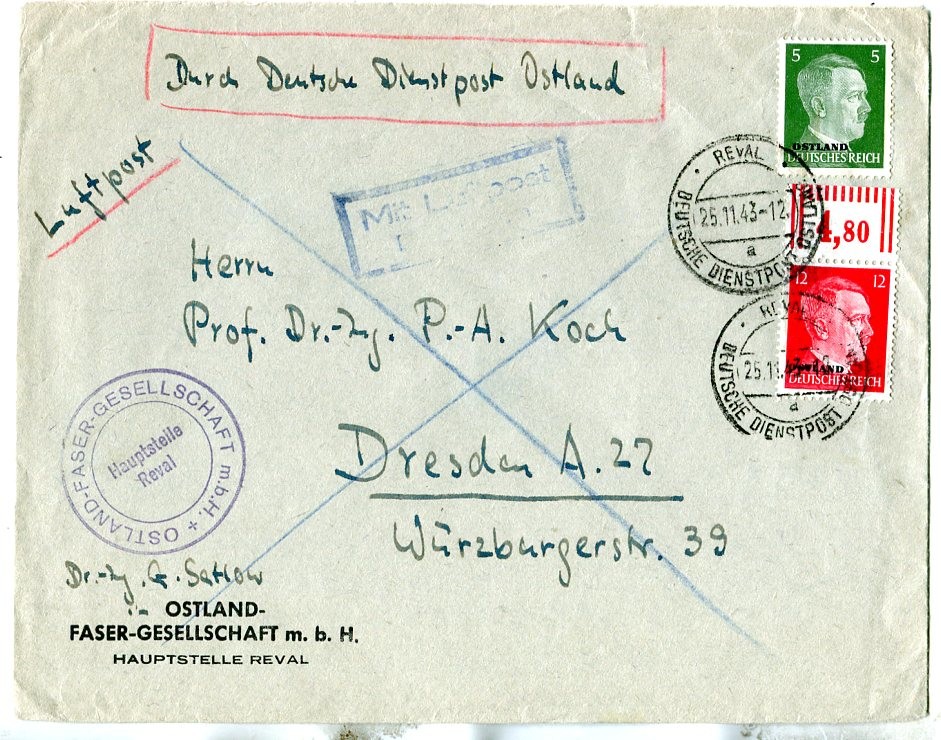 Durch Deutsche Dienstpost Ostland
Luftpost
Mit Luftpost
5 5
OSTLAND
DEUTSCHES REICH
REVAL
25.11.43-12
a
DEUTSCHE DIENSTPOST OSTLAND
4,80
12 12
OSTLAND
DEUTSCHES REICH
REVAL
25.11.
a
DEUTSCHE DIENSTPOST
Herrn
Prof. Dr.-Ing. P.-A. Koch
Dresden A. 27
Würzburgerstr. 39
OSTLAND-FASER-GESELLSCHAFT m.b.H. +
Hauptstelle
Reval
Dr.-Ing. G. Satlow
OSTLAND-
FASER-GESELLSCHAFT m. b. H.
HAUPTSTELLE REVAL